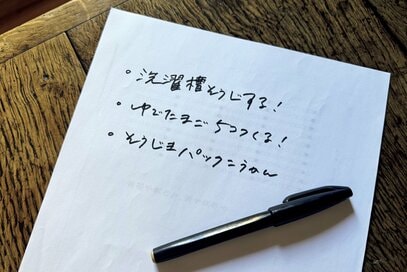 。洗濯槽そうじする!
。ゆでたまご5つつくる!
。そうじきパックこうかん